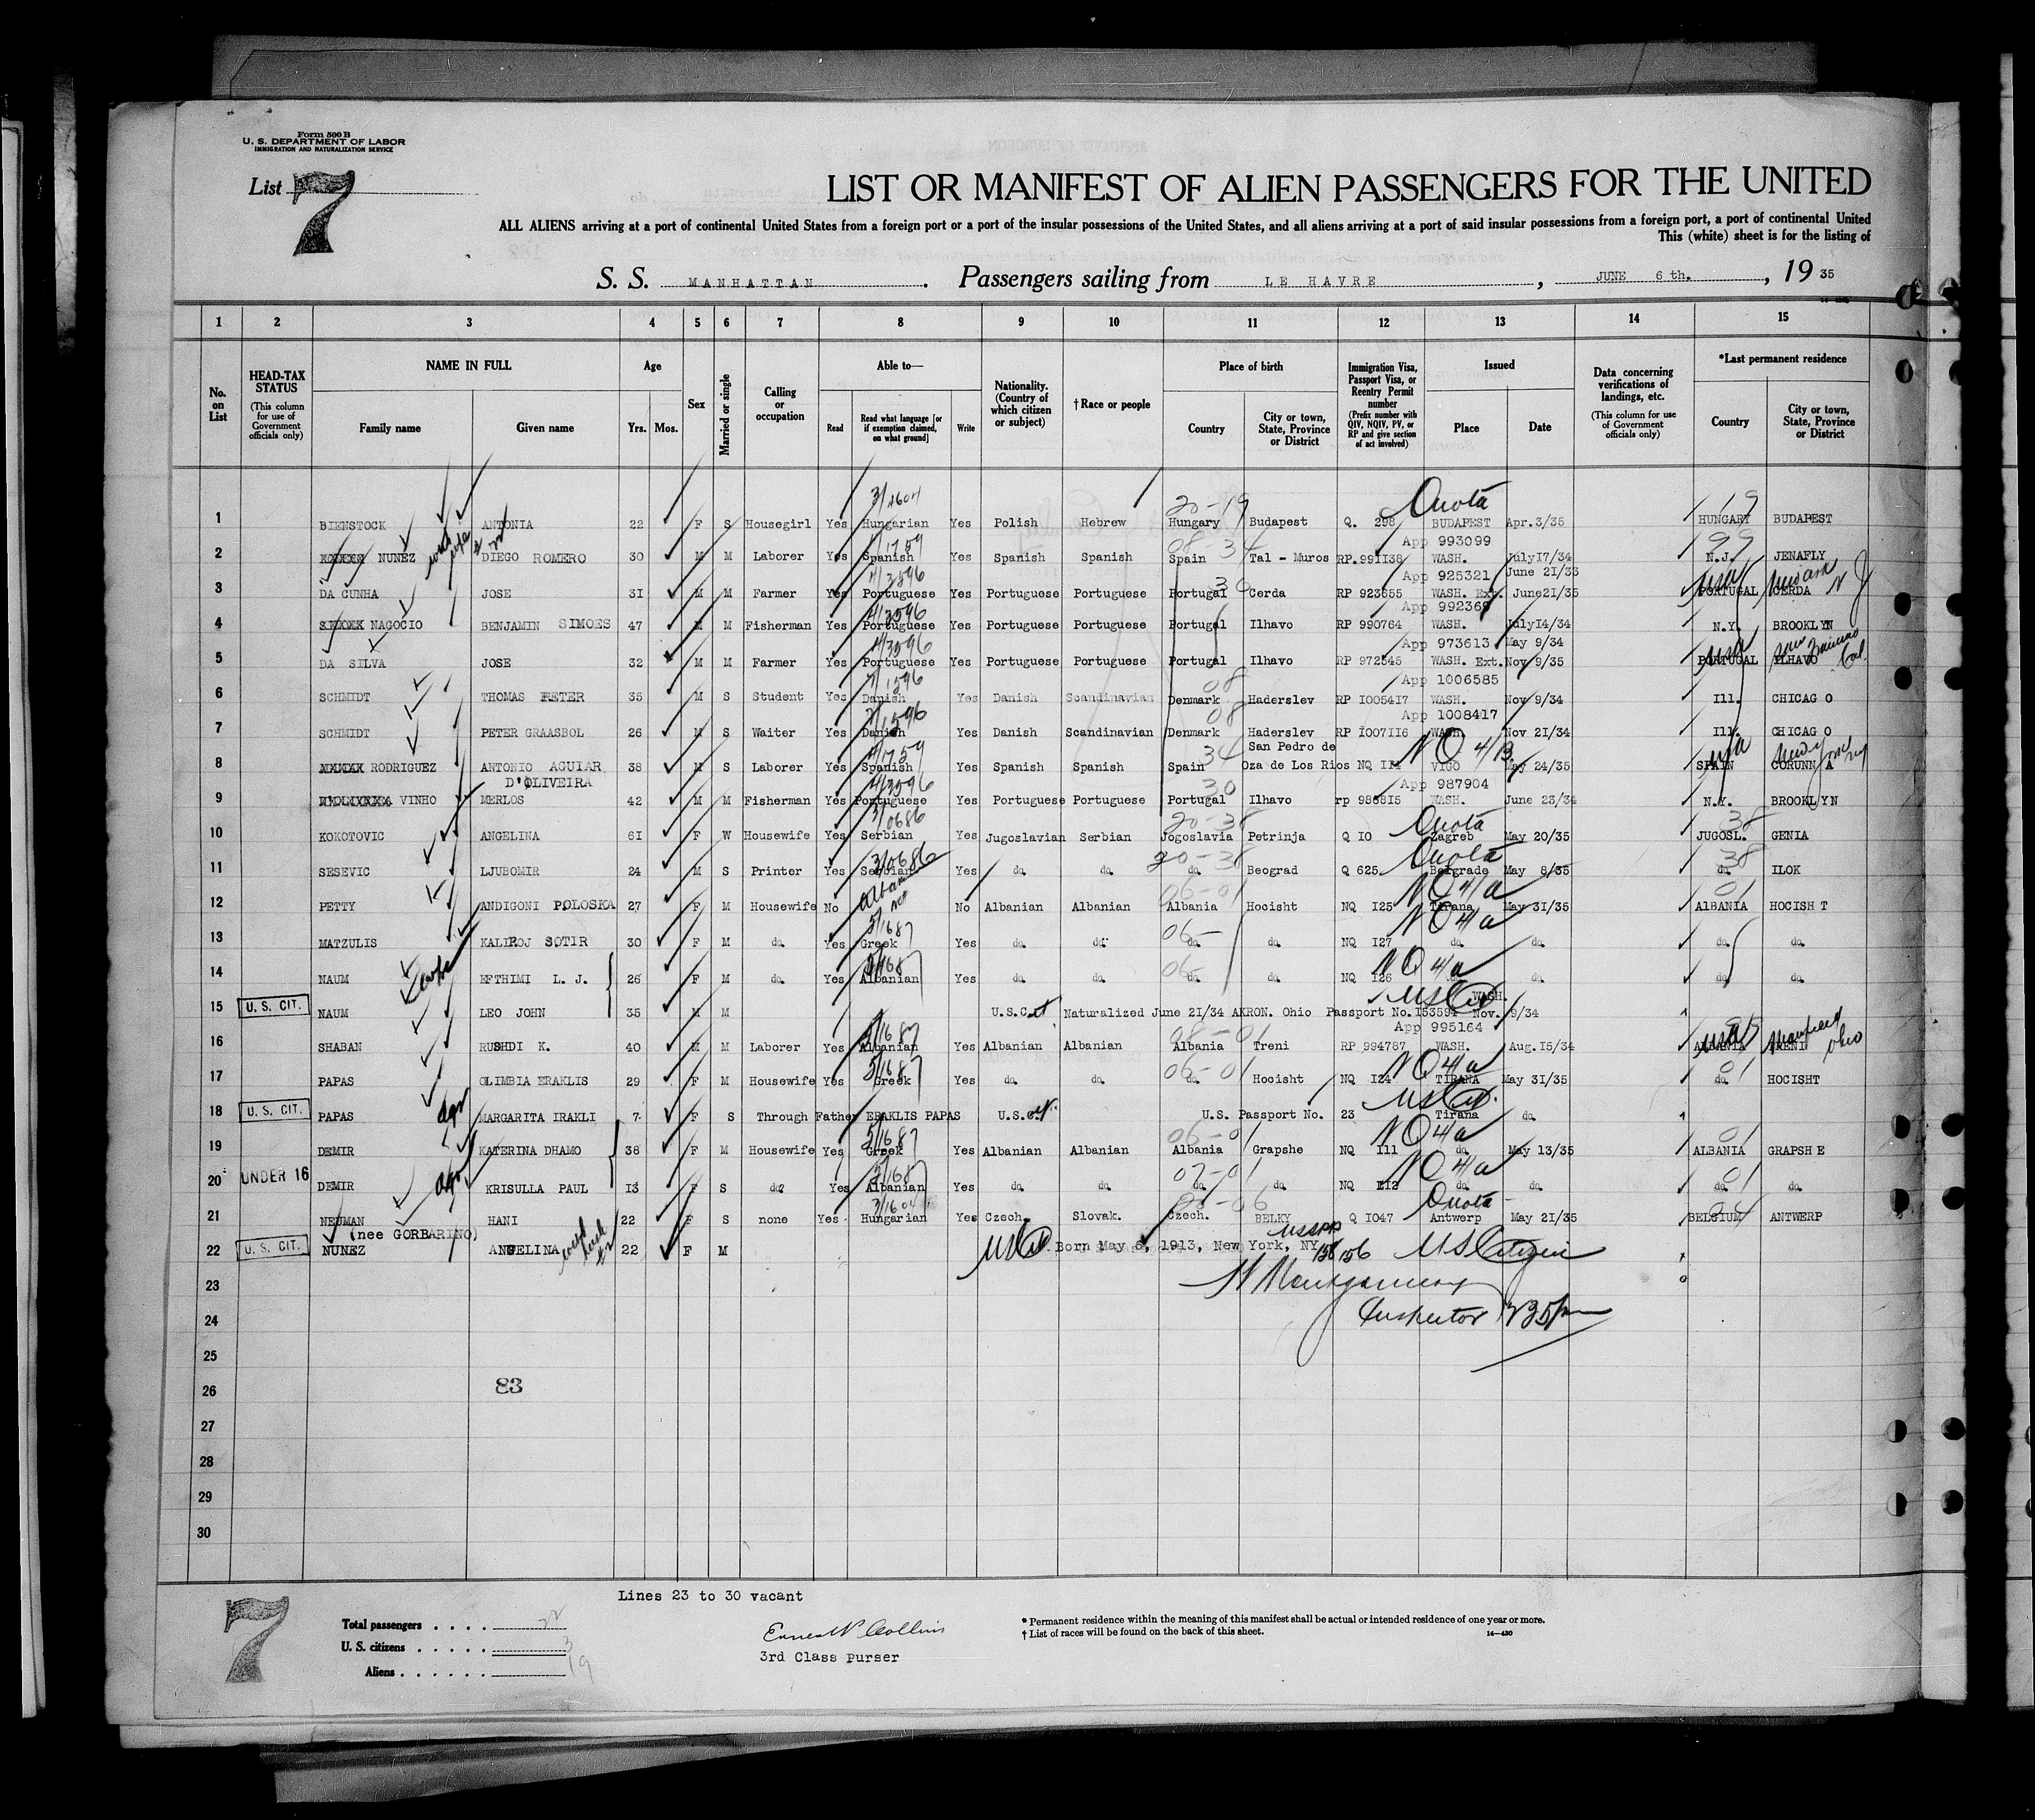 Form 500 B
U. S. DEPARTMENT OF LABOR
IMMIGRATION AND NATURALIZATION SERVICE
List 7
LIST OR MANIFEST OF ALIEN PASSENGERS FOR THE UNITED
ALL ALIENS arriving at a port of continental United States from a foreign port or a port of the insular possessions of the United States, and all aliens arriving at a port of said insular possessions from a foreign port, a port of continental United
This (white) sheet is for the listing of
S. S. MANHATTAN . Passengers sailing from LE HAVRE , JUNE 6 th. , 19 35
1 2 3 4 5 6 7 8 9 10 11 12 13 14 15
No. on List
HEAD-TAX STATUS (This column for use of Government officials only)
NAME IN FULL Family name Given name
Age Yrs. Mos.
Sex
Married or single
Calling or occupation
Able to— Read Read what language [or if exemption claimed, on what ground] Write
Nationality. (Country of which citizen or subject)
† Race or people
Place of birth Country City or town, State, Province or District
Immigration Visa, Passport Visa, or Reentry Permit number (Prefix number with QIV, NQIV, PV, or RP and give section of act involved)
Issued Place Date
Data concerning verifications of landings, etc. (This column for use of Government officials only)
*Last permanent residence Country City or town, State, Province or District
3/1604 20-19 Quota 19
1 BIENSTOCK ANTONIA 22 F S Housegirl Yes Hungarian Yes Polish Hebrew Hungary Budapest Q. 298 BUDAPEST Apr.3/35 HUNGARY BUDAPEST
App 993099
2 NUNEZ DIEGO ROMERO 30 M M Laborer Yes Spanish Yes Spanish Spanish Spain Tal - Muros RP.991138 WASH. July17/34 N.J. JENAFLY
App 925321 June 21/35
3 DA CUNHA JOSE 31 M M Farmer Yes Portuguese Yes Portuguese Portuguese Portugal Cerda RP 923655 WASH. Ext. June21/35 PORTUGAL CERDA
App 992369
4 NAGOCIO BENJAMIN SIMOES 47 M M Fisherman Yes Portuguese Yes Portuguese Portuguese Portugal Ilhavo RP 990764 WASH. July14/34 N.Y. BROOKLYN
App 973613 May 9/34
5 DA SILVA JOSE 32 M M Farmer Yes Portuguese Yes Portuguese Portuguese Portugal Ilhavo RP 972545 WASH. Ext. Nov 9/35 PORTUGAL ILHAVO
App 1006585
6 SCHMIDT THOMAS PETER 35 M S Student Yes Danish Yes Danish Scandinavian Denmark Haderslev RP 1005417 WASH. Nov 9/34 Ill. CHICAGO
App 1008417
7 SCHMIDT PETER GRAASBOL 26 M S Waiter Yes Danish Yes Danish Scandinavian Denmark Haderslev RP 1007116 WASH Nov 21/34 Ill. CHICAGO
San Pedro de
8 RODRIGUEZ ANTONIO AGUIAR 38 M S Laborer Yes Spanish Yes Spanish Spanish Spain Oza de Los Rios NQ VIGO May 24/35 SPAIN CORUNNA
D'OLIVEIRA App 987904
9 VINHO MERLOS 42 M M Fisherman Yes Portuguese Yes Portuguese Portuguese Portugal Ilhavo rp 986815 WASH. June 23/34 N.Y. BROOKLYN
3/0686 20-38 Quota 38
10 KOKOTOVIC ANGELINA 61 F W Housewife Yes Serbian Yes Jugoslavian Serbian Jogoslavia Petrinja Q 10 Zagreb May 20/35 JUGOSL. GENIA
3/0686 20-38 Quota 38
11 SESEVIC LJUBOMIR 24 M S Printer Yes Serbian Yes do. do. do. Beograd Q 625 Belgrade May 8/35 do. ILOK
NQ 4/a
12 PETTY ANDIGONI POLOSKA 27 F M Housewife No No Albanian Albanian Albania Hocisht NQ 125 Tirana May 31/35 AlBANIA HOCISHT
NQ 4/a
13 MATZULIS KALIROJ SOTIR 30 F M do. Yes Greek Yes do. do. do. do. NQ 127 do. do. do. do.
NQ 4/a
14 NAUM EFTHIMI L. J. 26 F M do. Yes Albanian Yes do. do. do. do. NQ 126 do. do. do. do.
WASH.
15 U. S. CIT. NAUM LEO JOHN 35 M M U.S.Cit Naturalized June 21/34 AKRON. Ohio Passport No.153594 Nov. 9/34
App 995164
16 SHABAN RUSHDI K. 40 M M Laborer Yes Albanian Yes Albanian Albanian Albania Treni RP 994787 WASH. Aug.15/34 ALBANIA TRENI Mansfield Ohio
NQ 4/a
17 PAPAS OLIMBIA ERAKLIS 29 F M Housewife Yes Greek Yes do. do. do. Hocisht NQ 124 TIRANA May 31/35 do. HOCISHT
US Cit.
18 U. S. CIT. PAPAS MARGARITA IRAKLI 7 F S Through Father ERAKLIS PAPAS U.S.Cit. U.S. Passport No. 23 Tirana do.
NQ 4/a
19 DEMIR KATERINA DHAMO 38 F M Housewife Yes Greek Yes Albanian Albanian Albania Grapshe NQ 111 do. May 13/35 ALBANIA GRAPSHE
NQ 4/a
20 UNDER 16 DEMIR KRISULLA PAUL 13 F S do? Yes Albanian Yes do. do. do. do. NQ 112 do. do. do. do.
3/1604 Quota
21 NEUMAN HANI 22 F S none Yes Hungarian Yes Czech. Slovak. Czech. BELKY Q 1047 Antwerp May 21/35 BELGIUM ANTWERP
(nee GORBARINO)
22 U. S. CIT. NUNEZ ANGELINA 22 F M US Cit. Born May 6, 1913, New York, NY US Citizen
23
Montgomery
24 Inspector
25
26 83
27
28
29
30
Lines 23 to 30 vacant
7
Total passengers . . . . 22
U. S. citizens . . . . . 3
Aliens . . . . . . 19
Ernest V Collins
3rd Class Purser
* Permanent residence within the meaning of this manifest shall be actual or intended residence of one year or more.
† List of races will be found on the back of this sheet.
14—430